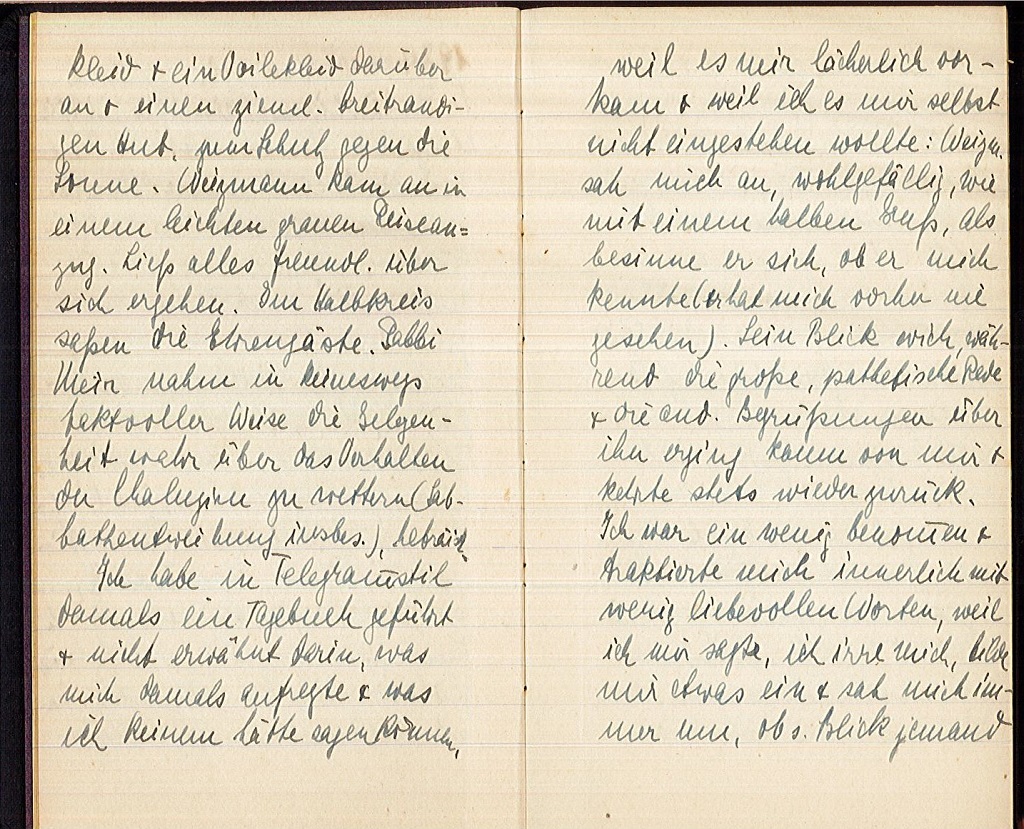 kleid + ein Voilekleid darüber
an + einen zieml. breitrandi-
gen Hut, zum Schutz gegen die
Sonne. Weizmann kam an in
einem leichten grauen Reisean=
zug. Ließ alles freundl. über
sich ergehen. Im Halbkreis
saßen die Ehrengäste. Rabbi
Meir nahm in keineswegs
taktvoller Weise die Gelgen-
heit wahr über das Verhalten
der Chaluzim zu wettern (Sab-
bathentweihung insbes.), hebräisch
Ich habe in Telegram̅stil
damals ein Tagebuch geführt
+ nicht erwähnt darin, was
mich damals aufregte + was
ich keinem hätte sagen können,
weil es mir lächerlich vor-
kam + weil ich es mir selbst
nicht eingestehen wollte: Weizm.
sah mich an, wohlgefällig, wie
mit einem halben Gruß, als
besinne er sich, ob er mich
kennte (er hat mich vorher nie
gesehen). Sein Blick wich, wäh-
rend die große, pathetische Rede
+ die and. Begrüßungen über
ihn erging kaum von mir +
kehrte stets wieder zurück.
Ich war ein wenig benom̅en +
traktierte mich innerlich mit
wenig liebevollen Worten, weil
ich mir sagte, ich irre mich, bilde
mir etwas ein + sah mich im-
mer um, ob s. Blick jemand